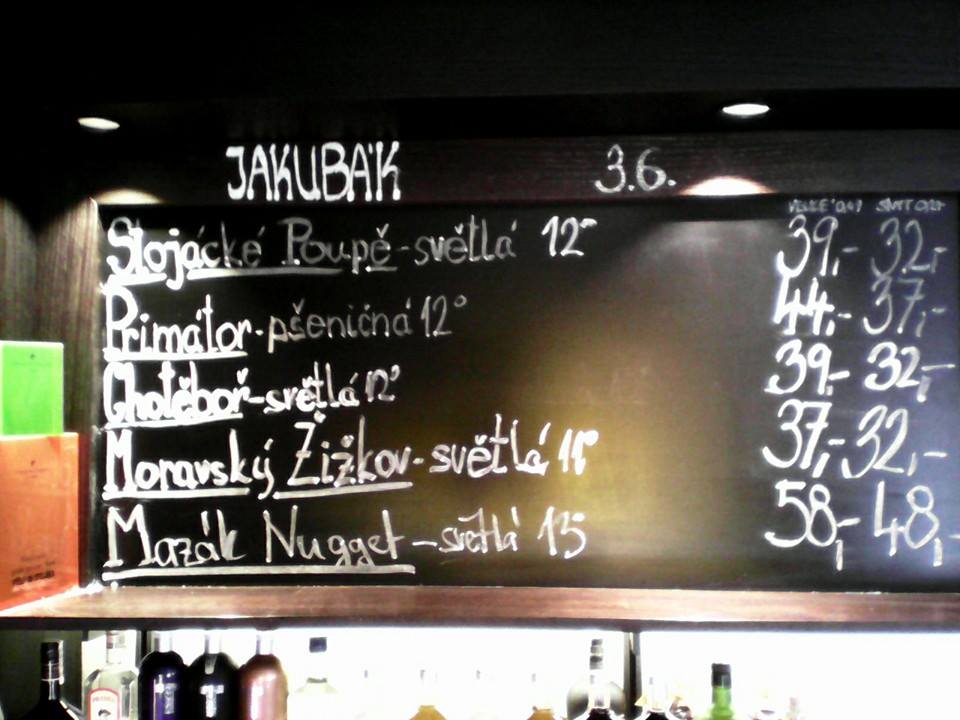 JAKUBÁK 3.6.
Slojácké Poupě - světlá 12° 39,- 32,-
Primátor - pšeničná 12° 44,- 37,-
Chotěboř - světlá 12° 39,- 32,-
Moravský Žižkov - světlá 11° 37,- 32,-
Mazák Nugget - světlá 13° 58,- 48,-